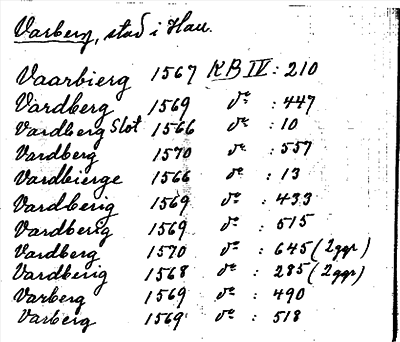 Varberg, stad i Hall.
Vaarbierg 1567 KB IV : 210
Vardberg 1569 dº : 447
Vardberg Slot 1566 dº : 10
Vardberg 1570 dº : 557
Vardbierge 1566 dº : 13
Vardberig 1569 dº : 433
Vardberig 1569 dº : 515
Vardberg 1570 dº : 645 (2ggr)
Vardberig 1568 dº : 285 (2ggr)
Varberg 1569 dº : 490
Varberg 1569 dº : 518